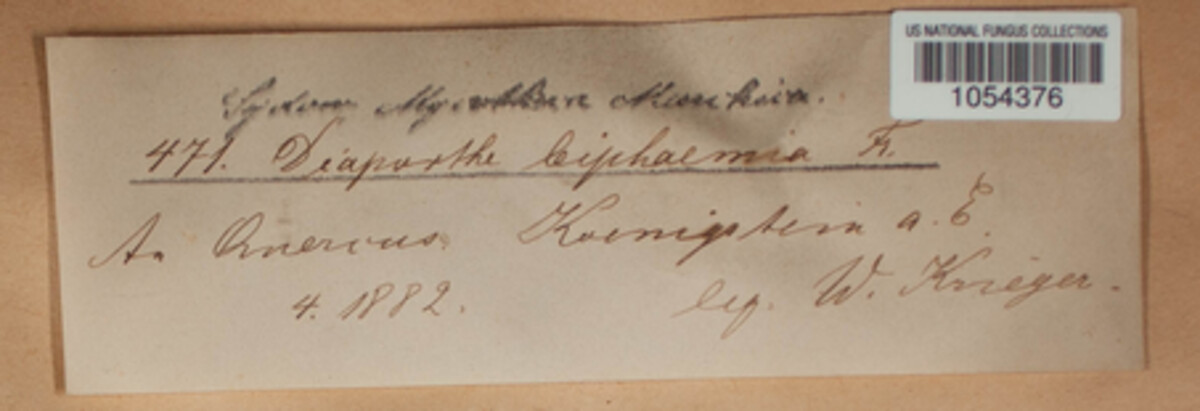 US NATIONAL FUNGUS COLLECTIONS
1054376
Sydow Mycotheca Marchica.
471. Diaporthe leiphaemia Fr.
An Quercus. Koenigstein a. E.
4. 1882. leg. W. Krieger.